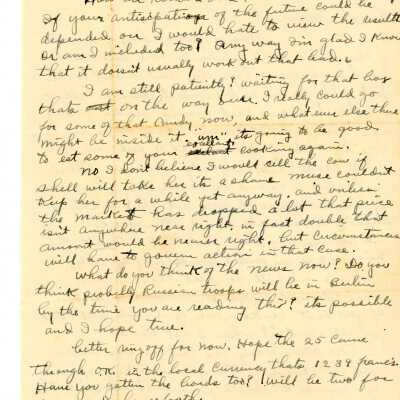 If your anticipations of the future could be
depended on I would hate to view the results
Or am I included too? Any way Im glad I know
that it doesn't usually work out that bad.
I am still patiently? waiting for that box
thats on the way over. I really could go
for some of that candy now, and what ever else there
might be inside it. "um" its going to be good
to eat some of your excellent cooking again.
No I don't believe I would sell the cow if
Shell will take her its a shame couldn't
keep her for a while yet anyway. and unless
the market has dropped a lot that price
isn't anywhere near right. in fact double that
amount would be nearer right, but circumstances
will have to govern action in that case.
What do you think of the news now? Do you
think probelly Russian troops will be in Berlin
by the time you are reading this? its possible
and I hope true.
better ring off for now. Hope the 25 came
through O.K. in the local currency thats 1239 francs.
Have you gotten the bonds too? Will be two for